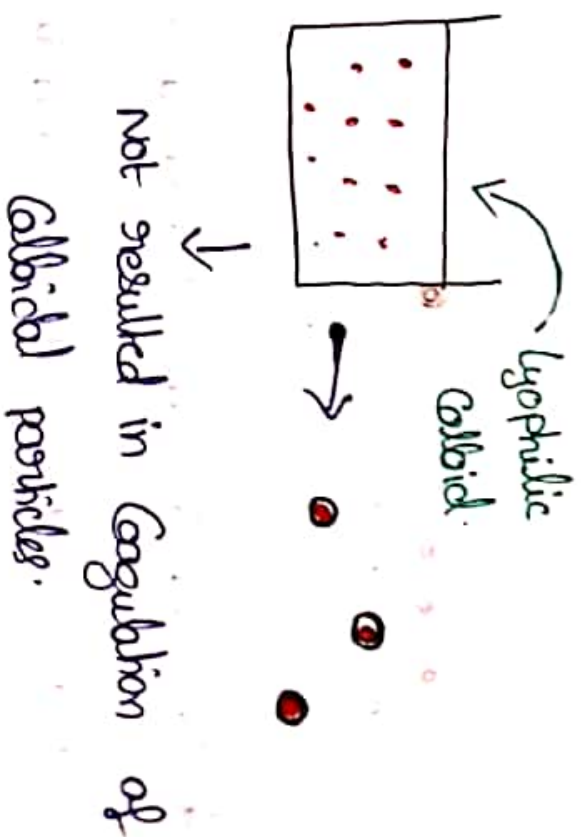 Lyophilic
Colloid.
Not resulted in Coagulation of
Colloidal particles.